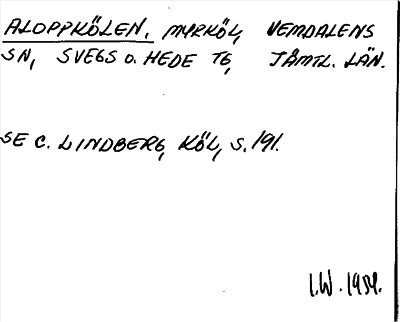 ALOPPKÖLEN, MYRKÖL, VEMDALENS
SN, SVEGS O. HEDE TG, JÄMTL. LÄN.
SE C. LINDBERG, KÖL, S. 191.
I.W. 1954.